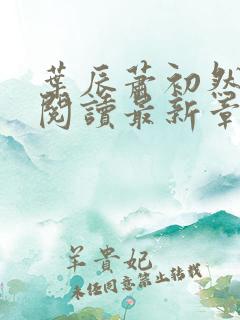 葉辰蕭初然
閱讀最新章
羊貴妃
未經同意禁止轉載